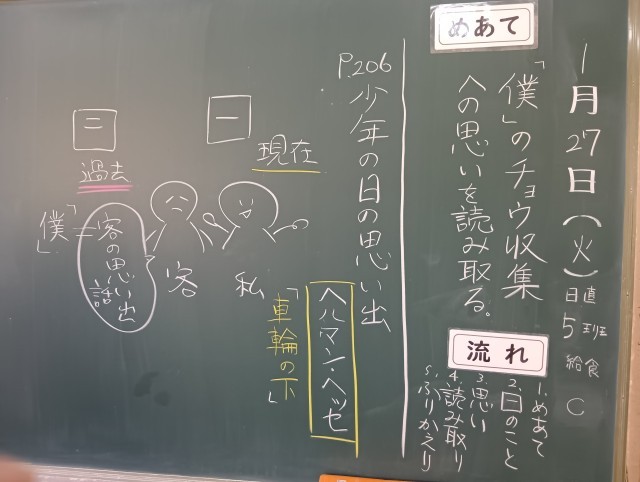 1月27日(火)
日直
5班
給食
C
めあて
「僕」のチョウ収集
への思いを読み取る。
流れ
1.めあて
2.日のこと
3.思い
4.読み取り
5.ふりかえり
P.206
少年の日の思い出
ヘルマン・ヘッセ
「車輪の下」
一
現在
私
客
二
過去
客の思い出話
=
「僕」